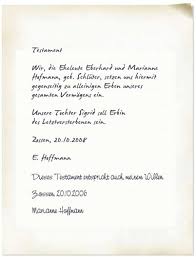 Testament
Wir, die Eheleute Eberhard und Marianne
Hoffmann, geb. Schlüter, setzen uns hiermit
gegenseitig zu alleinigen Erben unseres
gesamten Vermögens ein.
Unsere Tochter Sigrid soll Erbin
des Letztversterbenen sein.
Zossen, 20.10.2008
E. Hoffmann
Dieses Testament entspricht auch meinem Willen
Zossen, 20.10.2006
Marianne Hoffmann